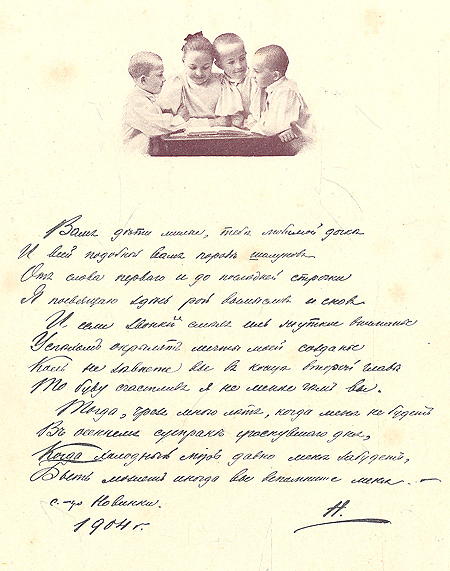 Вамъ дѣти милые, тебѣ любимой дочкѣ
И всей подобной вамъ породѣ шалуновъ
Отъ слова перваго и до послѣдней строчки
Я посвящаю здѣсь рой и сновъ
И если звонкій смѣхъ иль чуткое вниманье
мечты моей созданье
Коль не зѣвнете вы въ концѣ второй главы
То буду счастливъ я не менѣе чѣмъ вы.
Тогда, чрезъ много лѣтъ, когда меня не будетъ
Въ осеннемъ сумракѣ дня,
Когда холодный міръ давно меня забудетъ,
Быть можетъ иногда вы вспомните меня. —
с-цо Новинки.
1904 г.
Н.